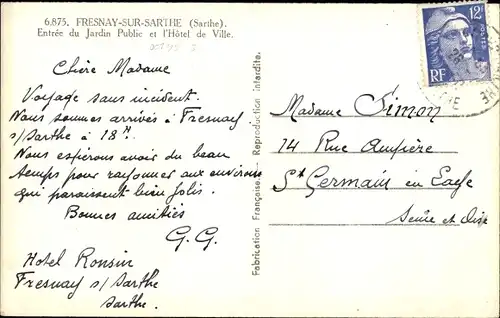 6.875. FRESNAY-SUR-SARTHE (Sarthe).
Entrée du Jardin Public et l'Hôtel de Ville.
Chère Madame
Voyage sans incident.
Nous sommes arrivés à Fresnay
s/Sarthe à 18H
Nous espérons avoir du beau
temps pour rayonner aux environs
qui paraissent bien jolis.
Bonnes amitiés
G. G.
Hotel Ronsin
Fresnay s/ Sarthe
Sarthe.
Fabrication Française - Reproduction interdite.
12F
POSTES
RF
Madame Simon
14 Rue Ampère
St Germain en Laye
Seine et Oise